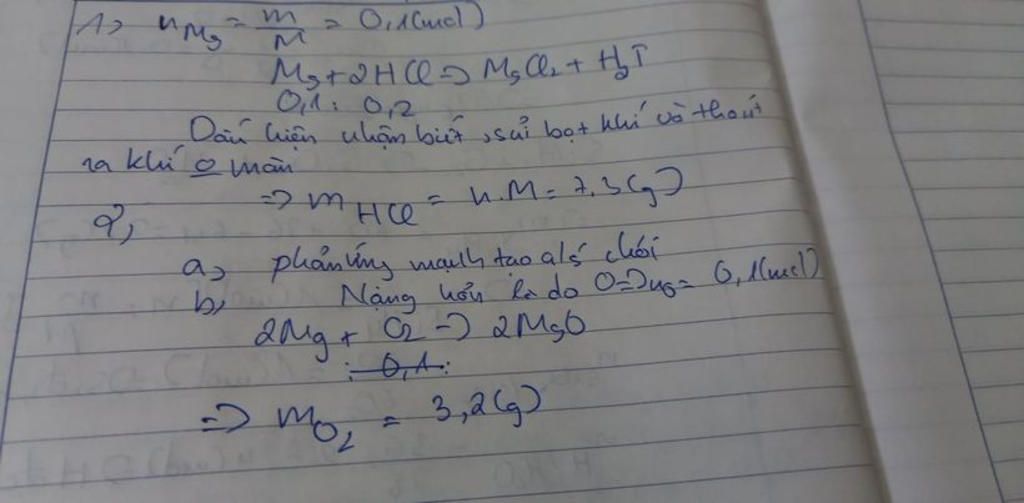 1> nMg = m/M = 0,1(mol)
Mg + 2HCl => MgCl2 + H2↑
0,1 : 0,2
Dấu hiện nhận biết, sủi bọt khí và thoát
ra khí o màu
=> mHCl = n.M = 7,3(g)
2,
a> phản ứng mạnh tạo chói
b, Nặng hơn là do O => nO = 0,1(mol)
2Mg + O2 -> 2MgO
: 0,1 :
=> mO2 = 3,2(g)